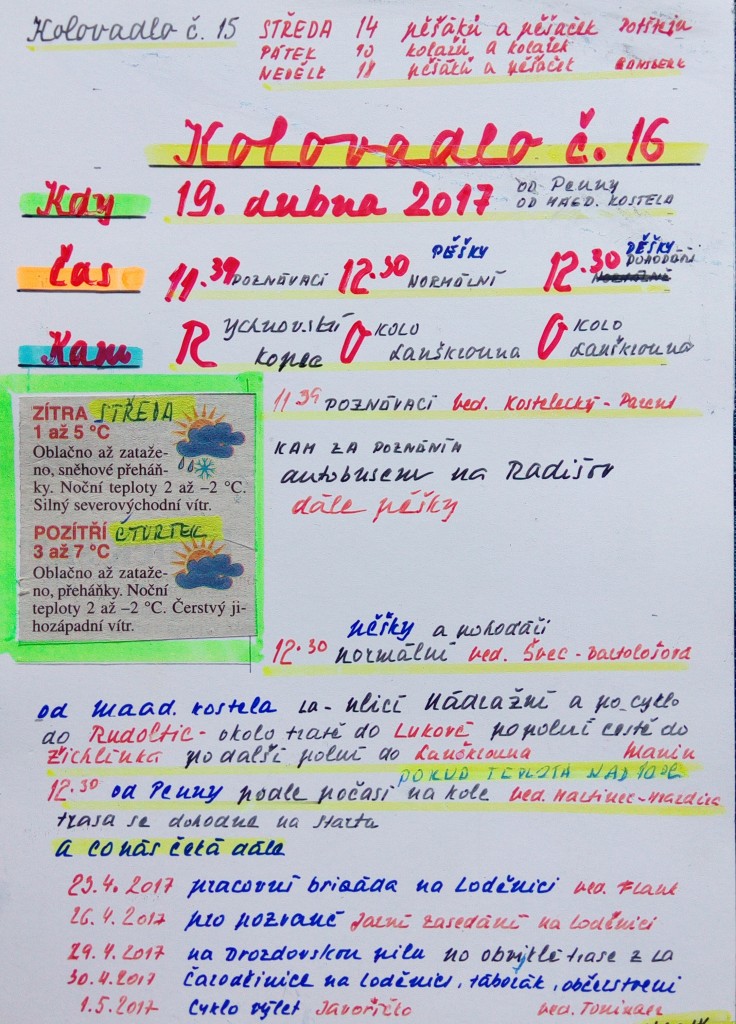 Kolovadlo č. 15 STŘEDA 14 pěšáků a pěšaček Potštejn
PÁTEK 10 kolařů a kolařek
NEDĚLE 18 pěšáků a pěšaček
Kolovadlo č. 16
Kdy 19. dubna 2017 OD Penny
OD MAGD. KOSTELA
Čas 11.39 POZNÁVACÍ 12.30 PĚŠKY NORMÁLNÍ 12.30 PĚŠKY POHODÁŘI
Kam Rychnovský kopec Okolo Lanškrouna Okolo Lanškrouna
ZÍTRA STŘEDA
1 až 5 °C
Oblačno až zataže-
no, sněhové přeháň-
ky. Noční teploty 2 až –2 °C.
Silný severovýchodní vítr.
POZÍTŘÍ ČTVRTEK
3 až 7 °C
Oblačno až zataže-
no, přeháňky. Noční
teploty 2 až –2 °C. Čerstvý ji-
hozápadní vítr.
11.39 POZNÁVACÍ ved. Kostelecký -
KAM ZA POZNÁNÍM
autobusem na Radišov
dále pěšky
pěšky a pohodáři
12.30 normální ved. Švec -
od Magd. kostela LA - ulicí Nádražní a po cyklo
do Rudoltic - okolo tratě do Lukové po polní cestě do
Žichlínka po další polní do Lanškrouna
POKUD TEPLOTA NAD 10°C
12.30 od Penny podle počasí na kole ved. Martinec -
trasa se dohodne na startu
A co nás čeká dále
23.4.2017 pracovní brigáda na Loděnici ved.
26.4.2017 pro pozvané Jarní zasedání na loděnici
29.4.2017 na Drozdovskou pilu po obvyklé trase z LA
30.4.2017 Čarodějnice na loděnici, táborák, občerstvení
1.5.2017 cyklo výlet Javoříčko ved.